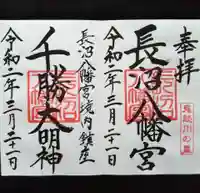 奉拝
長沼八幡宮
令和二年三月二十一日
長沼八幡宮境内鎮座
千勝大明神
令和二年三月二十一日